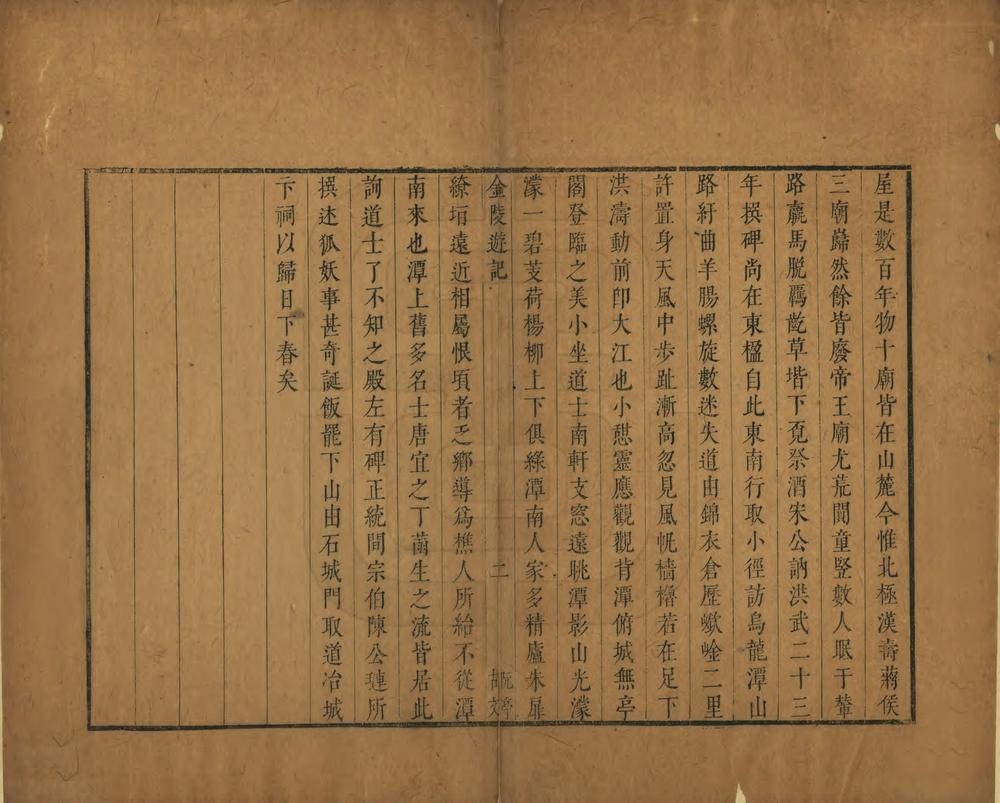 屋是數百年物十廟皆在山麓今惟北極漢壽蔣侯
三廟巋然餘皆廢帝王廟尤荒閴童豎數人眠于輦
路麤馬脱羈齕草堦下覔祭酒宋公訥洪武二十三
年撰碑尚在東楹自此東南行取小徑訪烏龍潭山
路紆曲羊腸螺旋數迷失道由錦衣倉歷嶔崟二里
許置身天風中歩趾漸高忽見風帆檣櫓若在足下
洪濤動前即大江也小憇靈應觀觀背潭俯城無亭
閣登臨之美小坐道士南軒支窓遠眺潭影山光濛
濛一碧芰荷楊柳上下俱綠潭南人家多精廬朱扉
金陵遊記
二
阮亭
故文
繚垣遠近相屬恨頃者乏鄉導爲樵人所紿不從潭
南來也潭上舊多名士唐宜之丁菡生之流皆居此
詢道士了不知之殿左有碑正統間宗伯陳公璉所
撰述狐妖事甚奇誕飯罷下山由石城門取道冶城
卞祠以歸日下舂矣